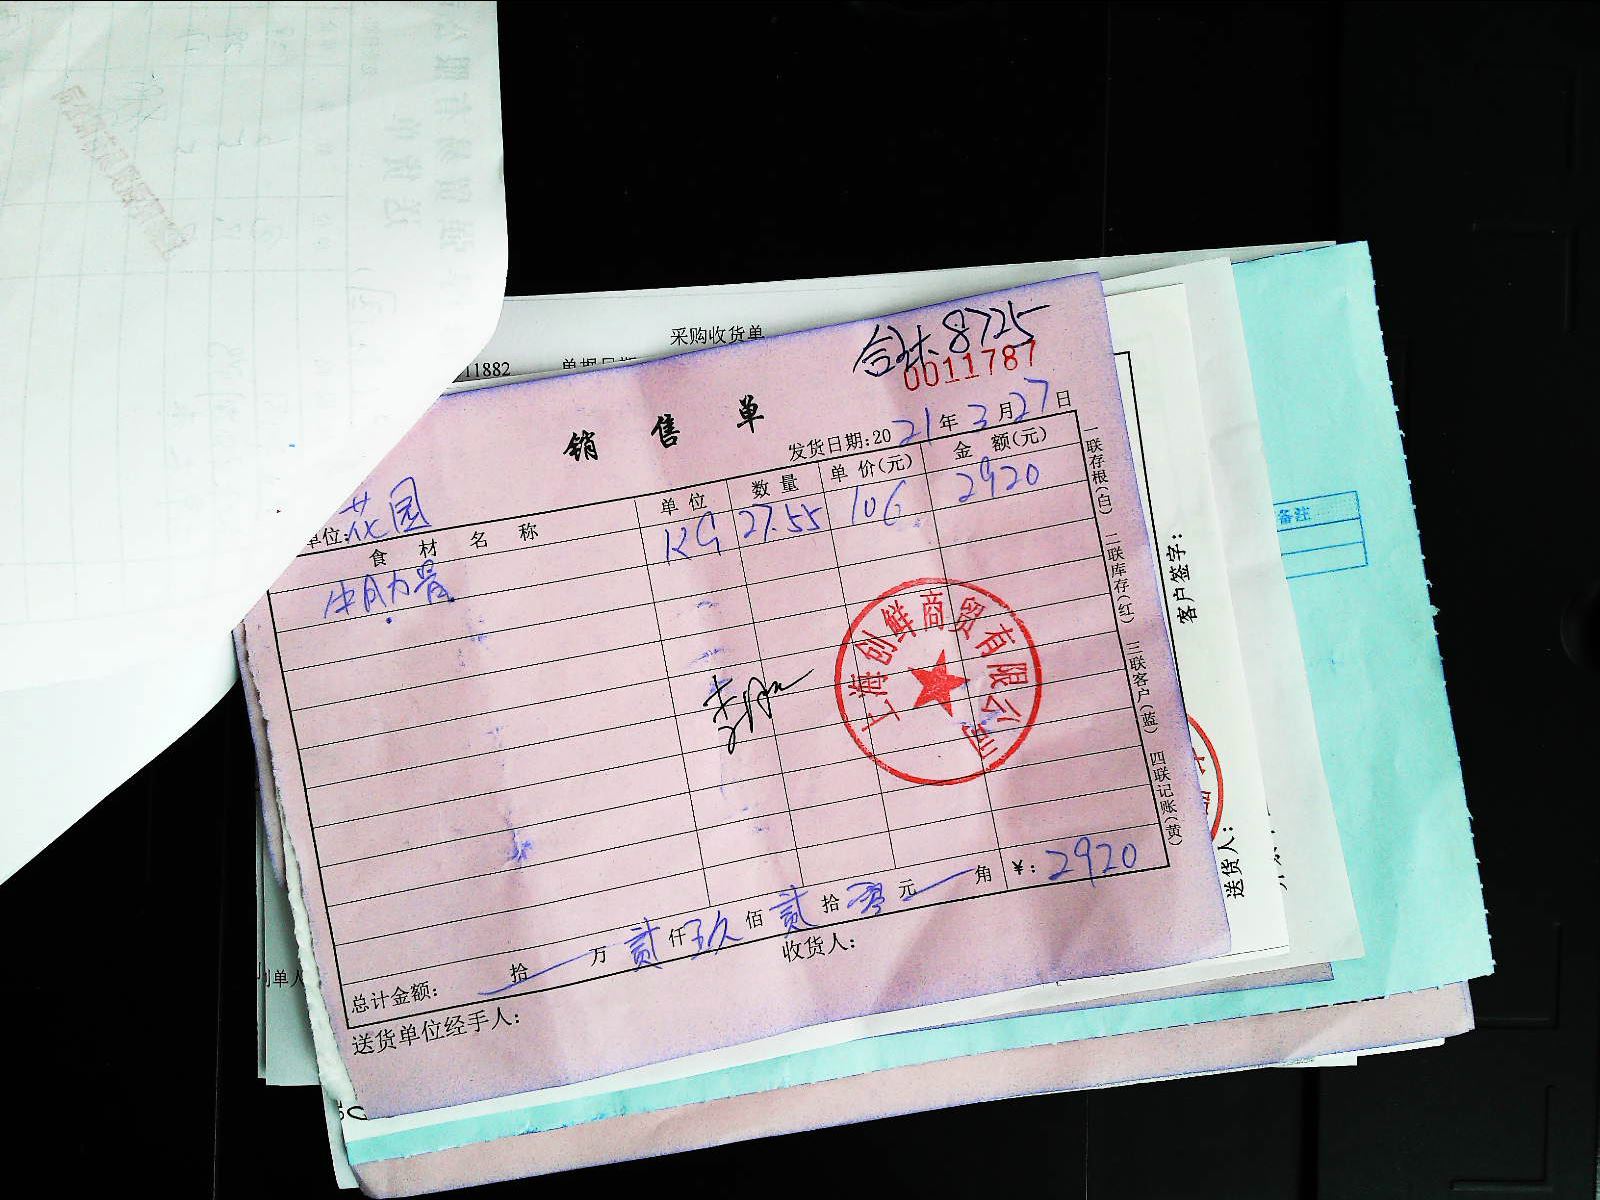 采购收货单
11882
合计8725
0011787
销售单
发货日期:2021年3月27日
单位:花园
食材名称 单位 数量 单价(元) 金额(元)
牛肋骨 KG 27.55 106 2920
上海创鲜商贸有限公司
一联存根(白) 二联库存(红) 三联客户(蓝) 四联记账(黄)
总计金额: 拾 万 贰 仟 玖 佰 贰 拾 零 元 角 ¥: 2920
送货单位经手人:
收货人:
客户签字:
送货人:
备注
制单人